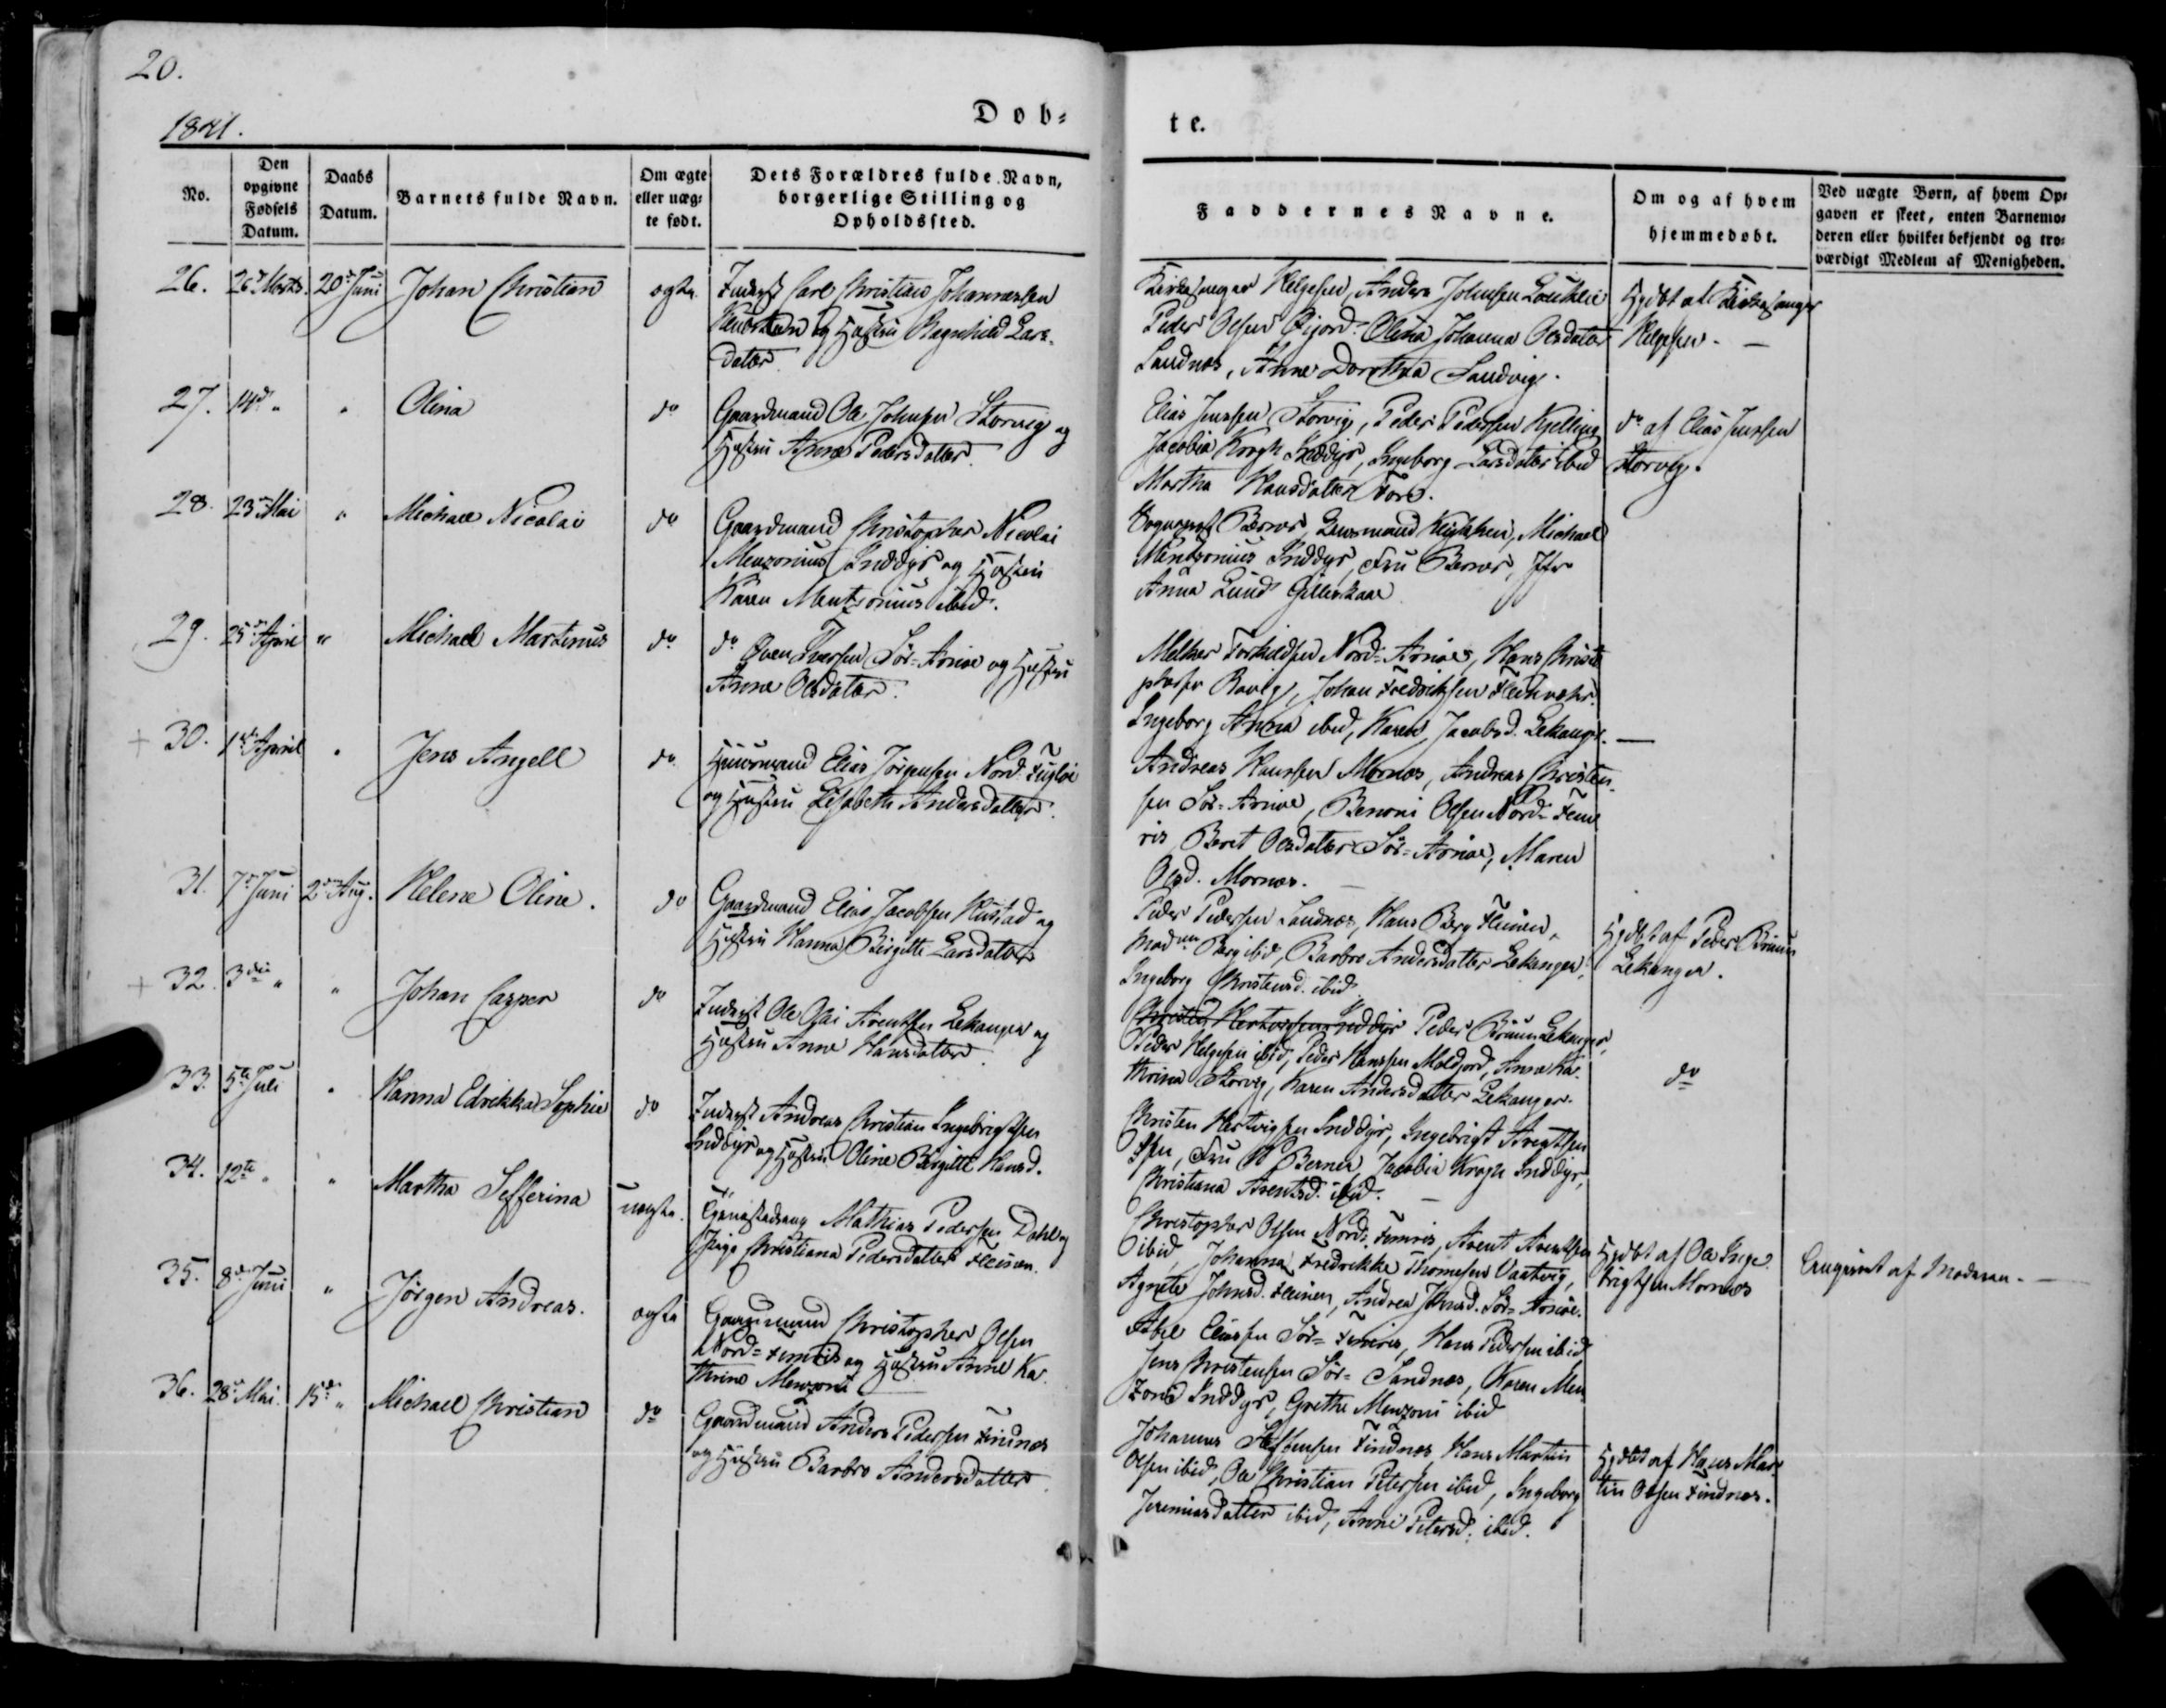 20.
1841.
Dob-
te.
No.
Den opgivne Fødsels Datum.
Daabs Datum.
Barnets fulde Navn.
Om ægte eller uægte født.
Dets Forældres fulde Navn, borgerlige Stilling og Opholdssted.
Faddernes Navne.
Om og af hvem hjemmedøbt.
Ved uægte Børn, af hvem Opgaven er skeet, enten Barnemoderen eller hvilket bekjendt og troværdigt Medlem af Menigheden.
26. 26 Marts 20 Juni Johan Christian ægte Inderst Carl Christian Johannessen
og Hustru Ragnhild Lars-
datter
Kirkesanger Helgesen, Anders Johnsen
Peder Olsen Øijord, Olina Johanna Olsdatter
Sandnæs, Anne Dorothea Sandvig.
Hjdbt af Kirkesanger
Helgesen. —
27. 14de " " Olina do Gaardmand Ole Johnsen Storvig og
Hustru Anne Pedersdatter.
Elias Jenssen Storvig, Peder Pedersen Kjelling
Jacobia Krogh Inddyr, Ingeborg Larsdatter ibid
Martha Hansdatter Fore.
do af Elias Jenssen
Storvig.
28. 23 Mai " Michael Nicolai do Gaardmand Christopher Nicolai
Menzonius Inddyr og Hustru
Karen Mentzonius ibid.
Sognepræst Berner, Lensmand, Michael
Mentzonius Inddyr, Fru Berner, Jfr
Anna Lund Gilleskaal
29. 25 April " Michael Martinus do do Iversen Sør-Arnøe og Hustru
Anne Olsdatter.
Melker Torkildsen Nord-Arnøe, Hans Christo
phersen, Johan Fredriksen Fleinvær
Ingeborg Anna ibid, Karen Jacobsd. Lekanger. —
+ 30. 1ste April " Jens Angell do Huusmand Elias Jørgensen Nord-Fugløe
og Hustru Elisabeth Andersdatter.
Andreas Hanssen Mørnæs, Andreas Christen-
sen Sør-Arnøe, Benoni Olsen Nord-Fem
ris, Beret Olsdatter Sør-Arnøe, Maren
Olsd. Mornæs.
31. 7 Juni 2 Aug. Helene Oline. do Gaardmand Elias Jacobsen Hustad og
Hustru Hanna Birgitte Larsdatter
Peder Pedersen Sandnæs, Hans Berg Fleinen,
Madm Berg ibid, Barbro Andersdatter Lekanger,
Ingeborg Christensd. ibid
Hjdbt af Peder Bruun
Lekanger.
+ 32. 3die " " Johan Casper do Inderst Ole Arentsen Lekanger og
Hustru Anne Hansdatter.
Christen Hertvigsen Inddyr Peder Bruun Lekanger,
Peder Helgesen ibid, Peder Hanssen Meldfjord, Anne Ka-
thrina Storvig, Karen Andersdatter Lekanger.
do
33. 5te Juli " Hanna Edrikka Sophie do Inderst Andreas Christian Ingebrigtsen
Inddyr og Hustru Oline Birgitte Hansd.
Christen Hertvigsen Inddyr, Ingebrigt Arentsen
Fru Berner, Jacobia Krogh Inddyr,
Christiana Arentsd. ibid. —
34. 12te " " Martha Sefferina uægte. Mathias Pedersen Dahl og
Pige Christiana Pedersdatter Fleinen.
Christopher Olsen Nord-Femris, Arent Arentsen
ibid, Johanna Fredrikke Thomesen,
Agnete Johnsd. Fleinen, Andrea Johnsd. Sør-Arnøe.
Hjdbt af Ole Inge-
brigtsen Mornæs
Angivet af Moderen. —
35. 8de Juni " Jørgen Andreas. ægte Gaardmand Christopher Olsen
Nord-Femris og Hustru Anne Ka-
thrine Menzoni
Abel Eliassen Sør-Femris, Hans Pedersen ibid
Jens Christensen Sør-Sandnæs, Karen Men
zoni Inddyr, Grethe Menzoni ibid
36. 28 Mai. 15de " Michael Christian do Gaardmand Anders Pedersen Findnæs
og Hustru Barbro Andersdatter.
Johannes Steffensen Findnæs, Hans Martin
Olsen ibid, Ole Christian Petersen ibid, Ingeborg
Jeremiasdatter ibid, Anne Petersd. ibid.
Hjdbt af Hans Mar-
tin Olsen Findnæs.